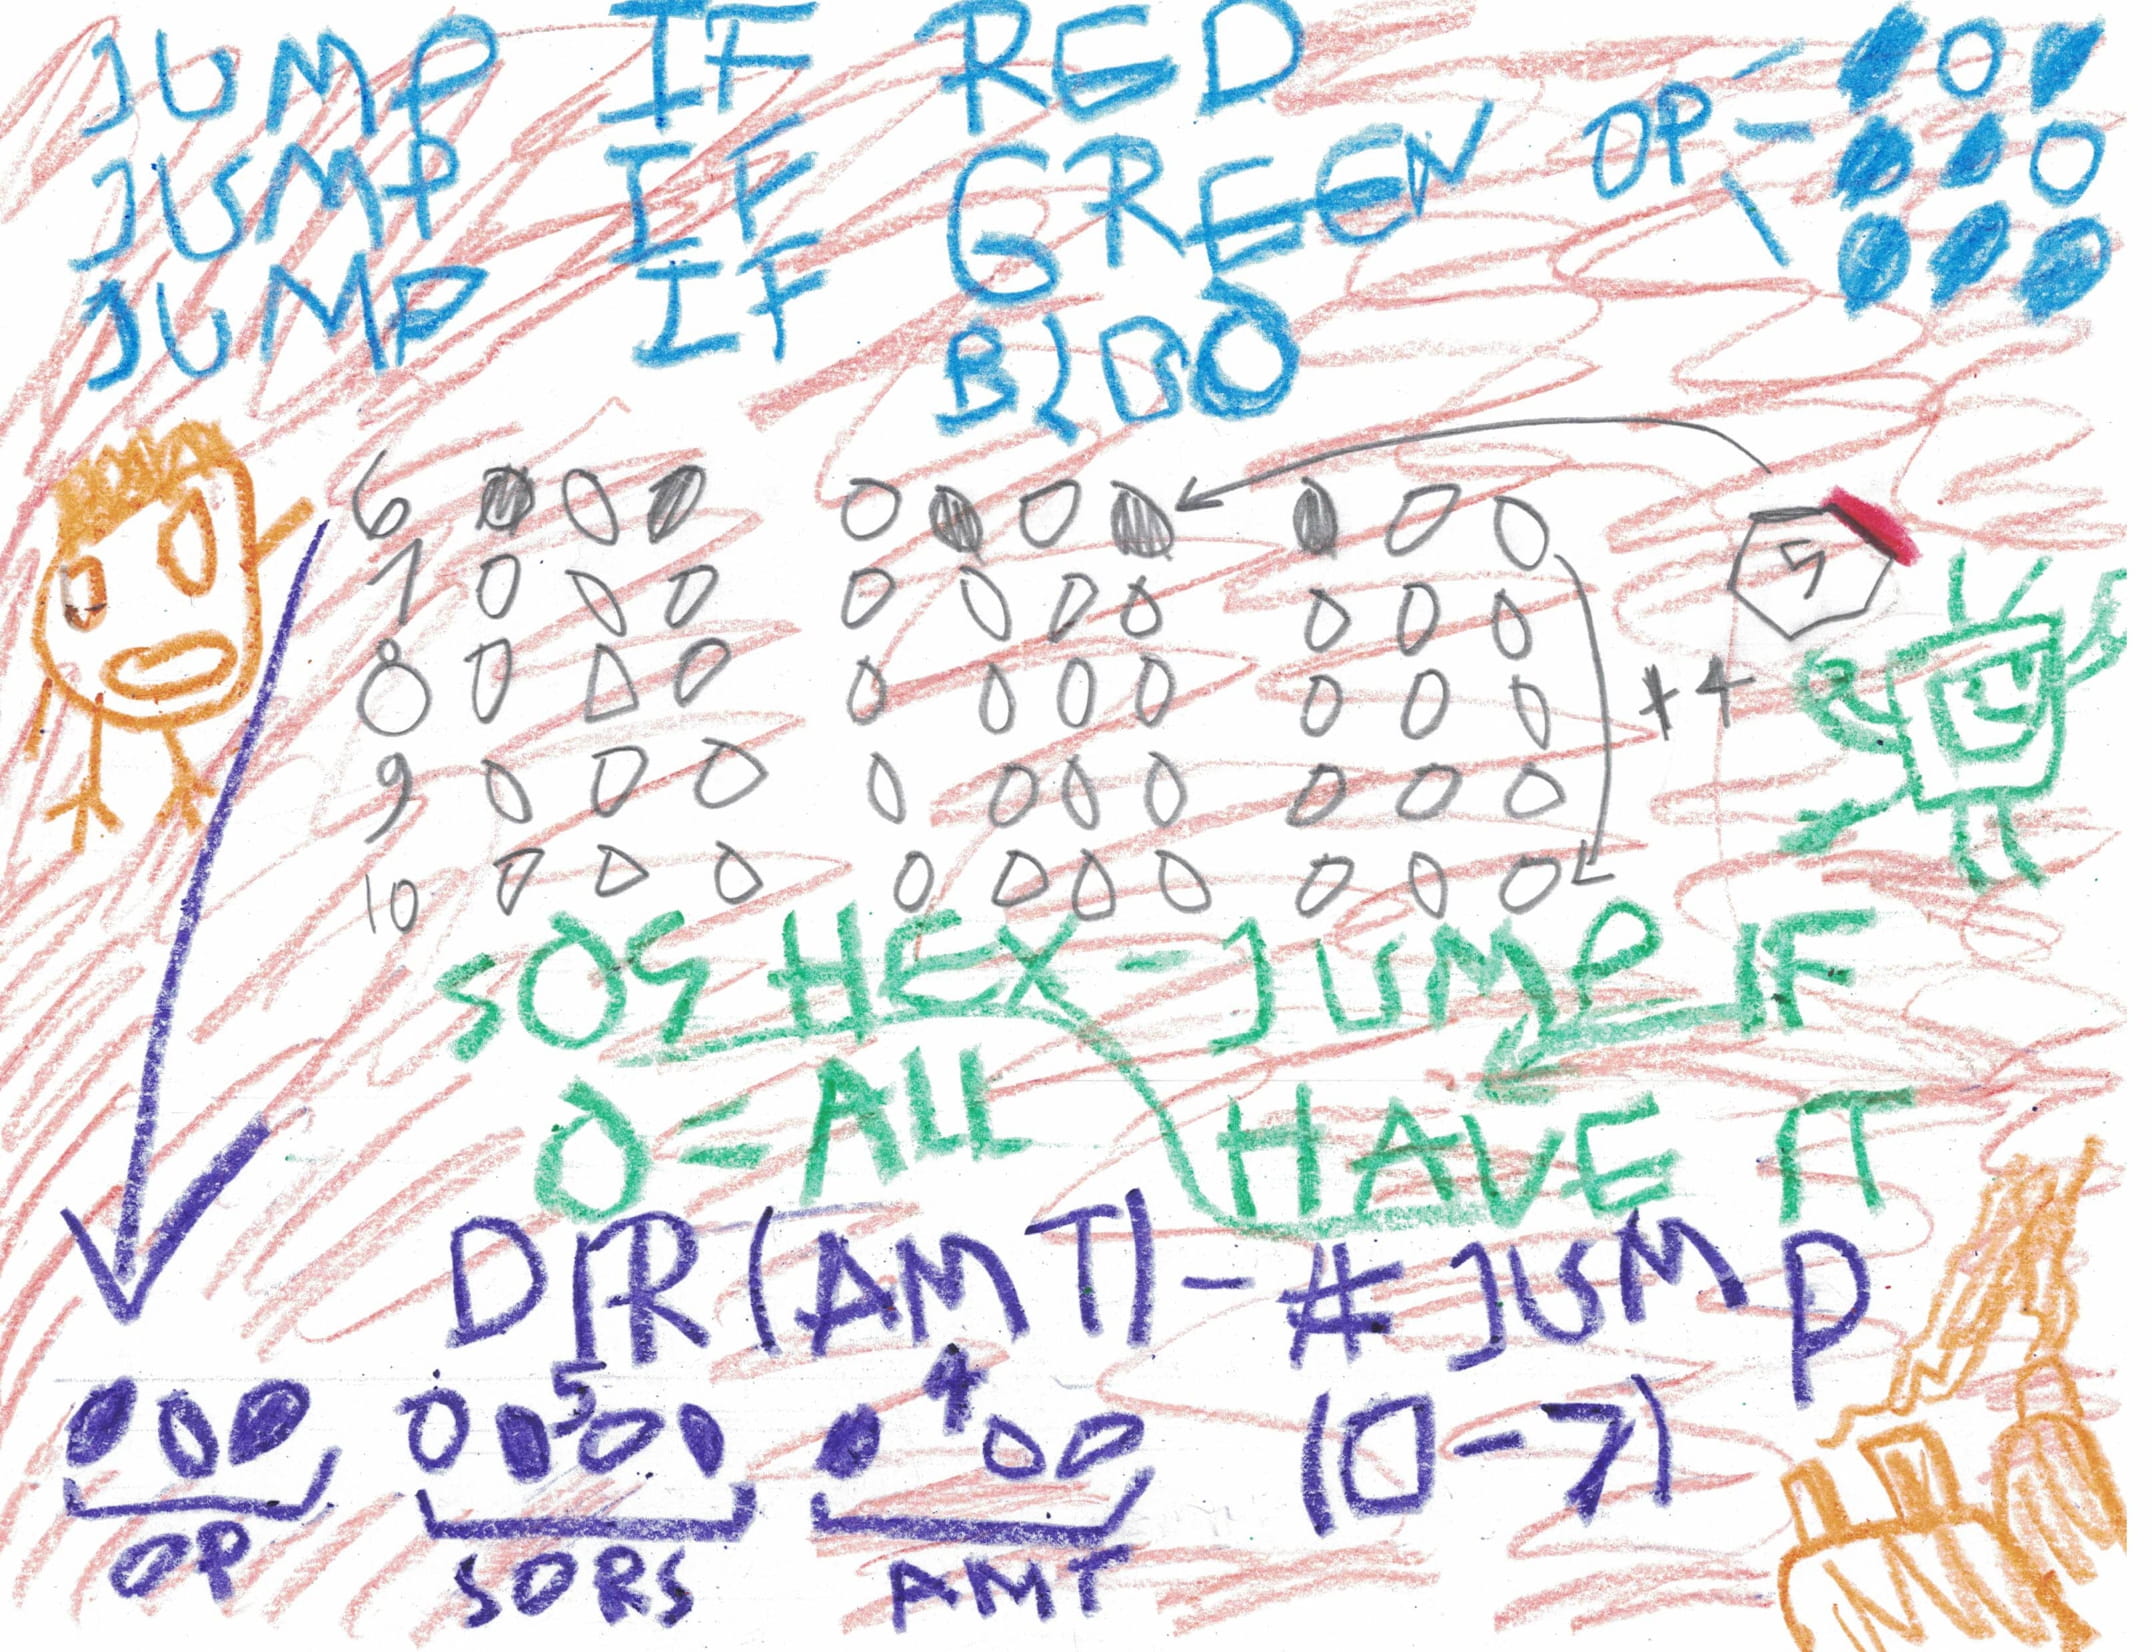 JUMP IF RED
JUMP IF GREEN
JUMP IF BLOO
OP
6
7
8
9
10
5
+4
SOS HEX - JUMP IF
0 = ALL HAVE IT
DIR (AMT) - # JUMP
(0-7)
5
4
OP
SORS
AMT